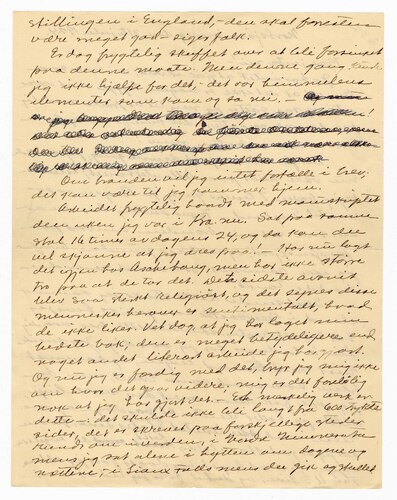 stillingen i England, – den skal forresten
være meget god – siger folk.
Er dog frygtelig skuffet over at bli forsinket
paa denne maate. Men denne gang kunde
jeg ikke hjælpe for det, – det var himmelens
elementer som kom og sa nei. –
Om branden vil jeg intet fortælle i brev;
det kan være til jeg kommer hjem.
Arbeidet frygtelig haardt med manuskriptet
den uken jeg var i Kra. nu. Sat paa samme
stol 16 timer av dagens 24, og da kan du
vel skjønne at jeg dres paa! Har nu lagt
det igjen hos Aschehoug, men har ikke større
tro paa at de tar det. Det sidste avsnit
blev saa sterkt religiøst, og det synes disse
mennesker bare er sentimentalt, hvad
de ikke liker. Vet dog at jeg har laget min
bedste bok; den er meget betydeligere end
noget andet literært arbeide jeg har gjort.
Og nu jeg er færdig med det, bryr jeg mig ikke
om hvor det gaar videre. mig er det foreløbig
nok at jeg har gjort det. – Et merkelig verk er
dette – det skulde ikke bli langt fra 600 trykte
sider, det er skrevet paa forskjellige steder
rundt om i verden, i Nordre Minnesota
mens jeg sat alene i hytten om dagene og
nættene; i Sioux Falls mens du gik og stullet